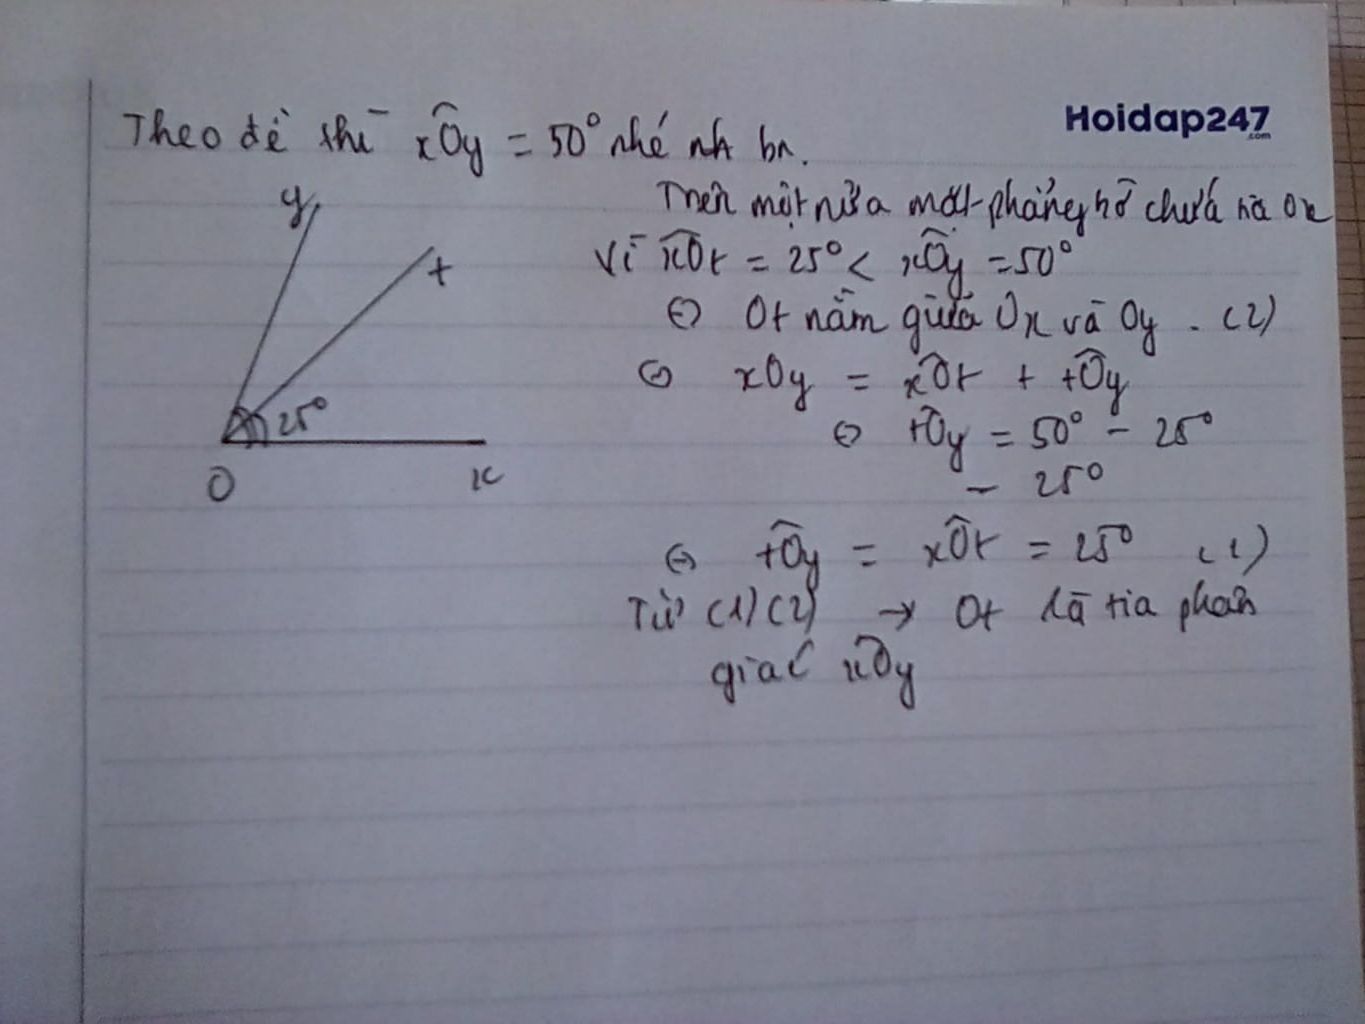 Theo đề thì xÔy = 50° nhé nh bn.
Hoidap247
.com
Trên một nửa mặt phẳng bờ chứa tia Ox
Vì xÔt = 25° < xÔy = 50°
⇔ Ot nằm giữa Ox và Oy. (2)
⇔ xOy = xÔt + tÔy
⇔ tÔy = 50° - 25°
- 25°
⇔ tÔy = xÔt = 25° (1)
Từ (1) (2) → Ot là tia phân
giác xÔy
y
t
25°
O
x